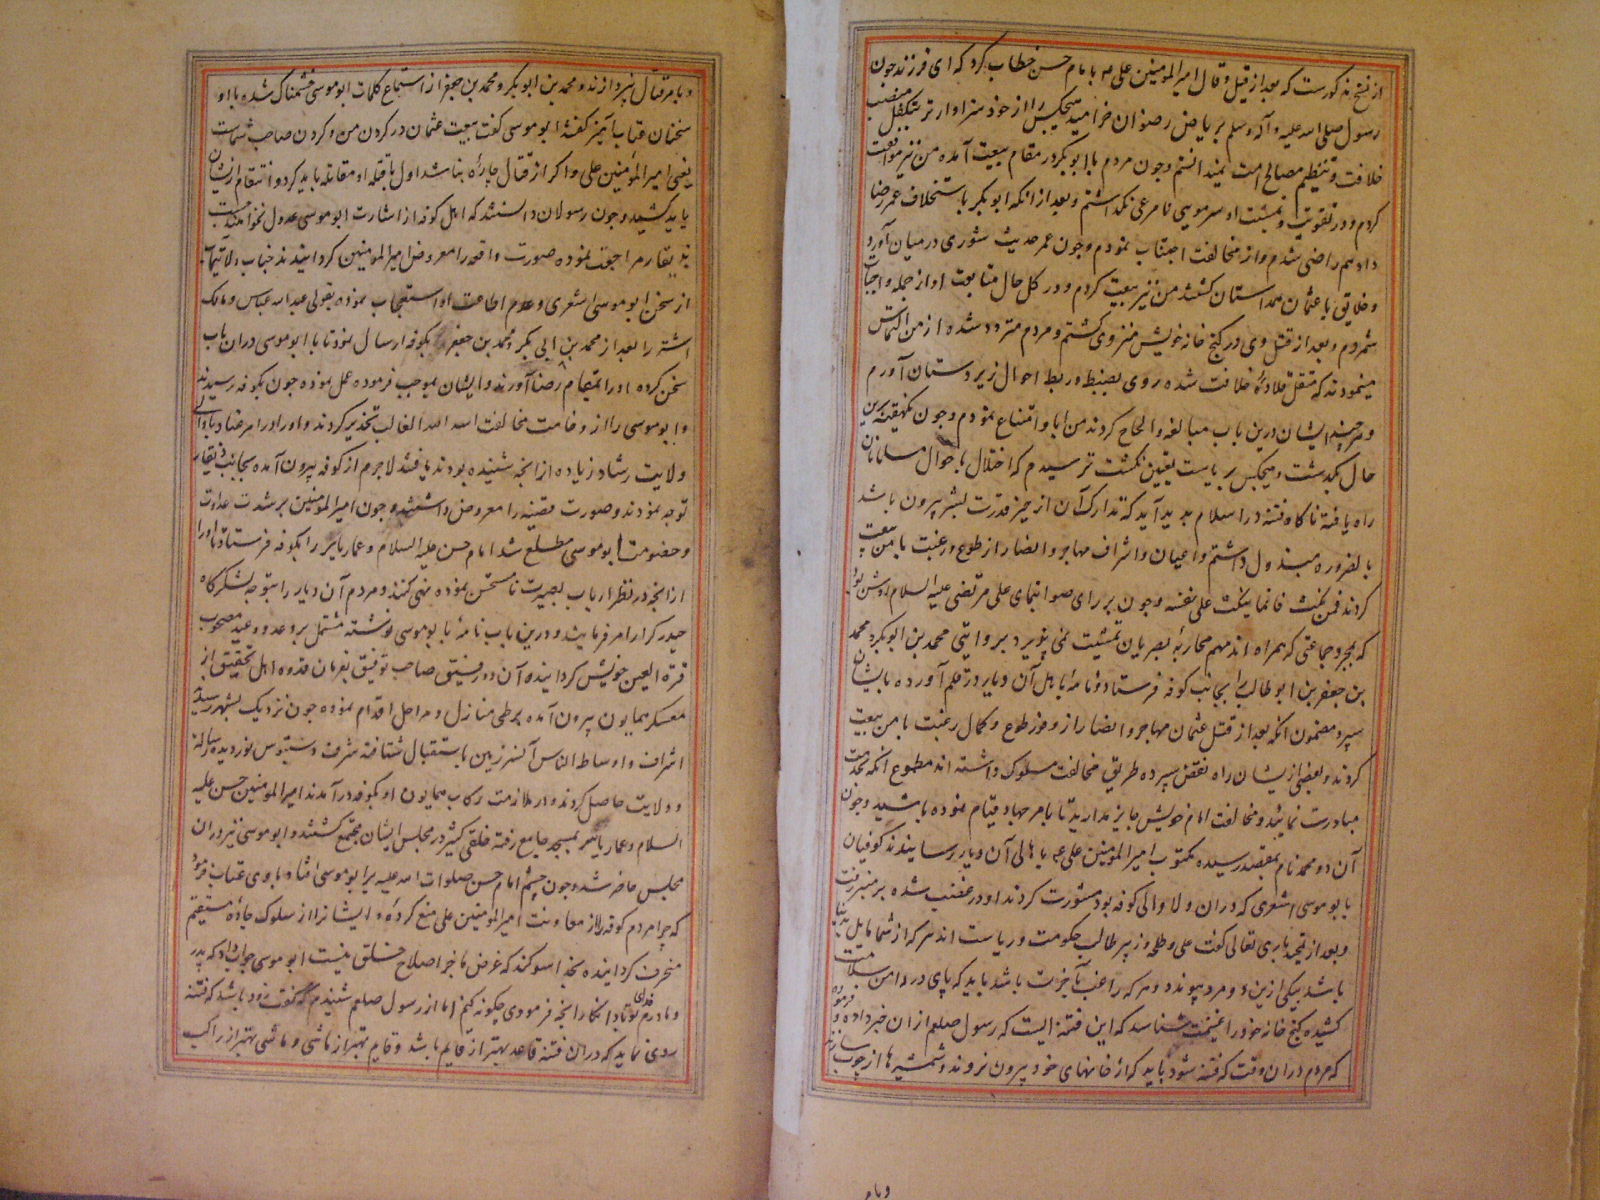 از نسخ مذکورست که بعد از قیل و قال امیرالمومنین علی بامام حسن خطاب کرد که ای فرزند چون
رسول صلی الله علیه وآله وسلم بریاض رضوان خرامید هیچکس را از خود سزاوارتر بتکفل منصب
خلافت و تنظیم مصالح امت نمیدانستم و چون مردم با ابوبکر در مقام بیعت آمده من نیز موافقت
کردم و در تقویت و تمشیت او سر مویی نامرعی نگذاشتم و بعد از انکه ابوبکر باستخلاف عمر رضا
داد هم راضی شدم و از مخالفت اجتناب نمودم و چون عمر حدیث شوری درمیان آورد
و خلایق با عثمان همداستان کشتند من نیز بیعت کردم و در کل حال متابعت او از جمله واجبات
شمردم و بعد از قتل وی در کنج خانه خویش منزوی کشتم و مردم متردد شده از من التماس
مینمودند که متقلد قلاده خلافت شده روی بضبط و ربط احوال زیردستان آورم
و هرچند ایشان درین باب مبالغه و الحاح کردند من ابا و امتناع نمودم و چون یکهفته برین
حال بگذشت و هیچکس بریاست تعیین نکشت ترسیدم که اختلال باحوال مسلمانان
راه یافته ناکاه فتنه در اسلام پدید آید که تدارک آن از حیز قدرت بشر بیرون باشد
بالضروره مبذول داشتم و اعیان و اشراف مهاجر و انصار از طوع و رغبت با من بیعت
کردند فمن نکث فانما ینکث علی نفسه و چون بر رای صواب نمای علی مرتضی علیه السلام روشن بود
که بمجرد جماعتی که همراه اند مهم محاربه بصریان تمشیت نمی پذیرد بروایتی محمد بن ابوبکر و محمد
بن جعفر بن ابوطالب را بجانب کوفه فرستاد و نامه باهل آن دیار در قلم آورده بایشان
سپرد مضمون انکه بعد از قتل عثمان مهاجر و انصار از وفور طوع و کمال رغبت با من بیعت
کردند و بعضی از ایشان راه نقض سپرده طریق مخالفت مسلوک داشته اند مطموع انکه بخدمت
مبادرت نمائید و مخالفت امام خویش جایز مدارید تا بامر جهاد قیام نموده باشید و چون
آن دو محمد نام بمقصد رسیده مکتوب امیرالمومنین علی باهالی آن دیار رسانیدند کوفیان
با ابوموسی اشعری که دران ولا والی کوفه بود مشورت کردند او در غضب شده بر منبر رفت
و بعد از تحمید باری تعالی کفت علی و طلحه و زبیر طالب حکومت و ریاست اند هر که از شما مایل بدنیا
باشد بیکی ازین دو مرد پیوندد و هر که راغب بآخرت باشد باید که پای در دامن سلامت
کشیده کنج خانه خود را غنیمت شناسد که این فتنه ایست که رسول صلعم از ان خبر داده و فرموده
که مردم دران وقت که فتنه شود باید که از خانهای خود بیرون نروند و شمشیرها از چوب سازند
وبامر
و بامر قتال نپردازند و محمد بن ابوبکر و محمد بن جعفر از استماع کلمات ابوموسی خشمناک شده با او
سخنان عتاب آمیز کفتند ابوموسی کفت بیعت عثمان در کردن من و کردن صاحب شماست
یعنی امیرالمؤمنین علی و اکر از قتال چاره نباشد اول با قتله او مقاتله باید کرد و انتقام ازیشان
باید کشید و چون رسولان دانستند که اهل کوفه از اشارت ابوموسی عدول نخواهند جست
بذیقار مراجعت نموده صورت واقعه را معروض امیرالمومنین کردانیدند جناب ولایتمآب
از سخن ابوموسی اشعری و عدم اطاعت او استعجاب نموده بقولی عبدالله عباس و مالک
اشتر را بعد از محمد بن ابی بکر و محمد بن جعفر بکوفه ارسال نمود تا با ابوموسی دران باب
سخن کرده او را بمقام رضا آورند و ایشان بموجب فرموده عمل نموده چون بکوفه رسیدند
و ابوموسی را از وخامت مخالفت اسد الله الغالب تحذیر کردند و او را در امر عناد با والی
ولایت رشاد زیاده از انچه شنیده بودند یافتند لاجرم از کوفه بیرون آمده بجانب ذیقار
توجه نمودند و صورت قضیه را معروض داشتند و چون امیرالمومنین بر شدت عداوت
و خصومت ابوموسی مطلع شد امام حسن علیه السلام و عمار یاسر را بکوفه فرستاد تا او را
از انچه در نظر ارباب بصیرت نامستحسن نموده نهی کنند و مردم آن دیار را بتوجه لشکرکاه
حیدر کرار امر فرمایند و درین باب نامه با بوموسی نوشته مشتمل بر وعد و وعید مصحوب
قرة العین خویش کردانیده آن دو رفیق صاحب توفیق بفرمان قدوه اهل تحقیق از
معسکر همایون بیرون آمده بر طی منازل و مراحل اقدام نموده چون نزدیک بشهر رسیدند
اشراف و اوساط الناس آنسرزمین باستقبال شتافته شرف دستبوس نوردیده رسالت
و ولایت حاصل کردند و در ملازمت رکاب همایون او بکوفه درآمدند امیرالمومنین حسن علیه
السلام و عمار یاسر بمسجد جامع رفته خلقی کثیر در مجلس ایشان مجتمع کشتند و ابوموسی نیز دران
مجلس حاضر شد و چون چشم امام حسن صلوات الله علیه بر ابوموسی افتاد با وی عتاب فرمود
که چرا مردم کوفه را از معاونت امیرالمومنین علی منع کرده و ایشانرا از سلوک جاده مستقیم
منحرف کردانیده بخدا سوکند که غرض ما جز اصلاح خلق نیست ابوموسی جواب داد که پدر
و مادرم فدای تو باد انکار انچه فرمودی چکونه کنم اما از رسول صلعم شنیدم که کفت زود باشد که فتنه
روی نماید که دران فتنه قاعد بهتر از قایم باشد و قایم بهتر از ماشی و ماشی بهتر از راکب